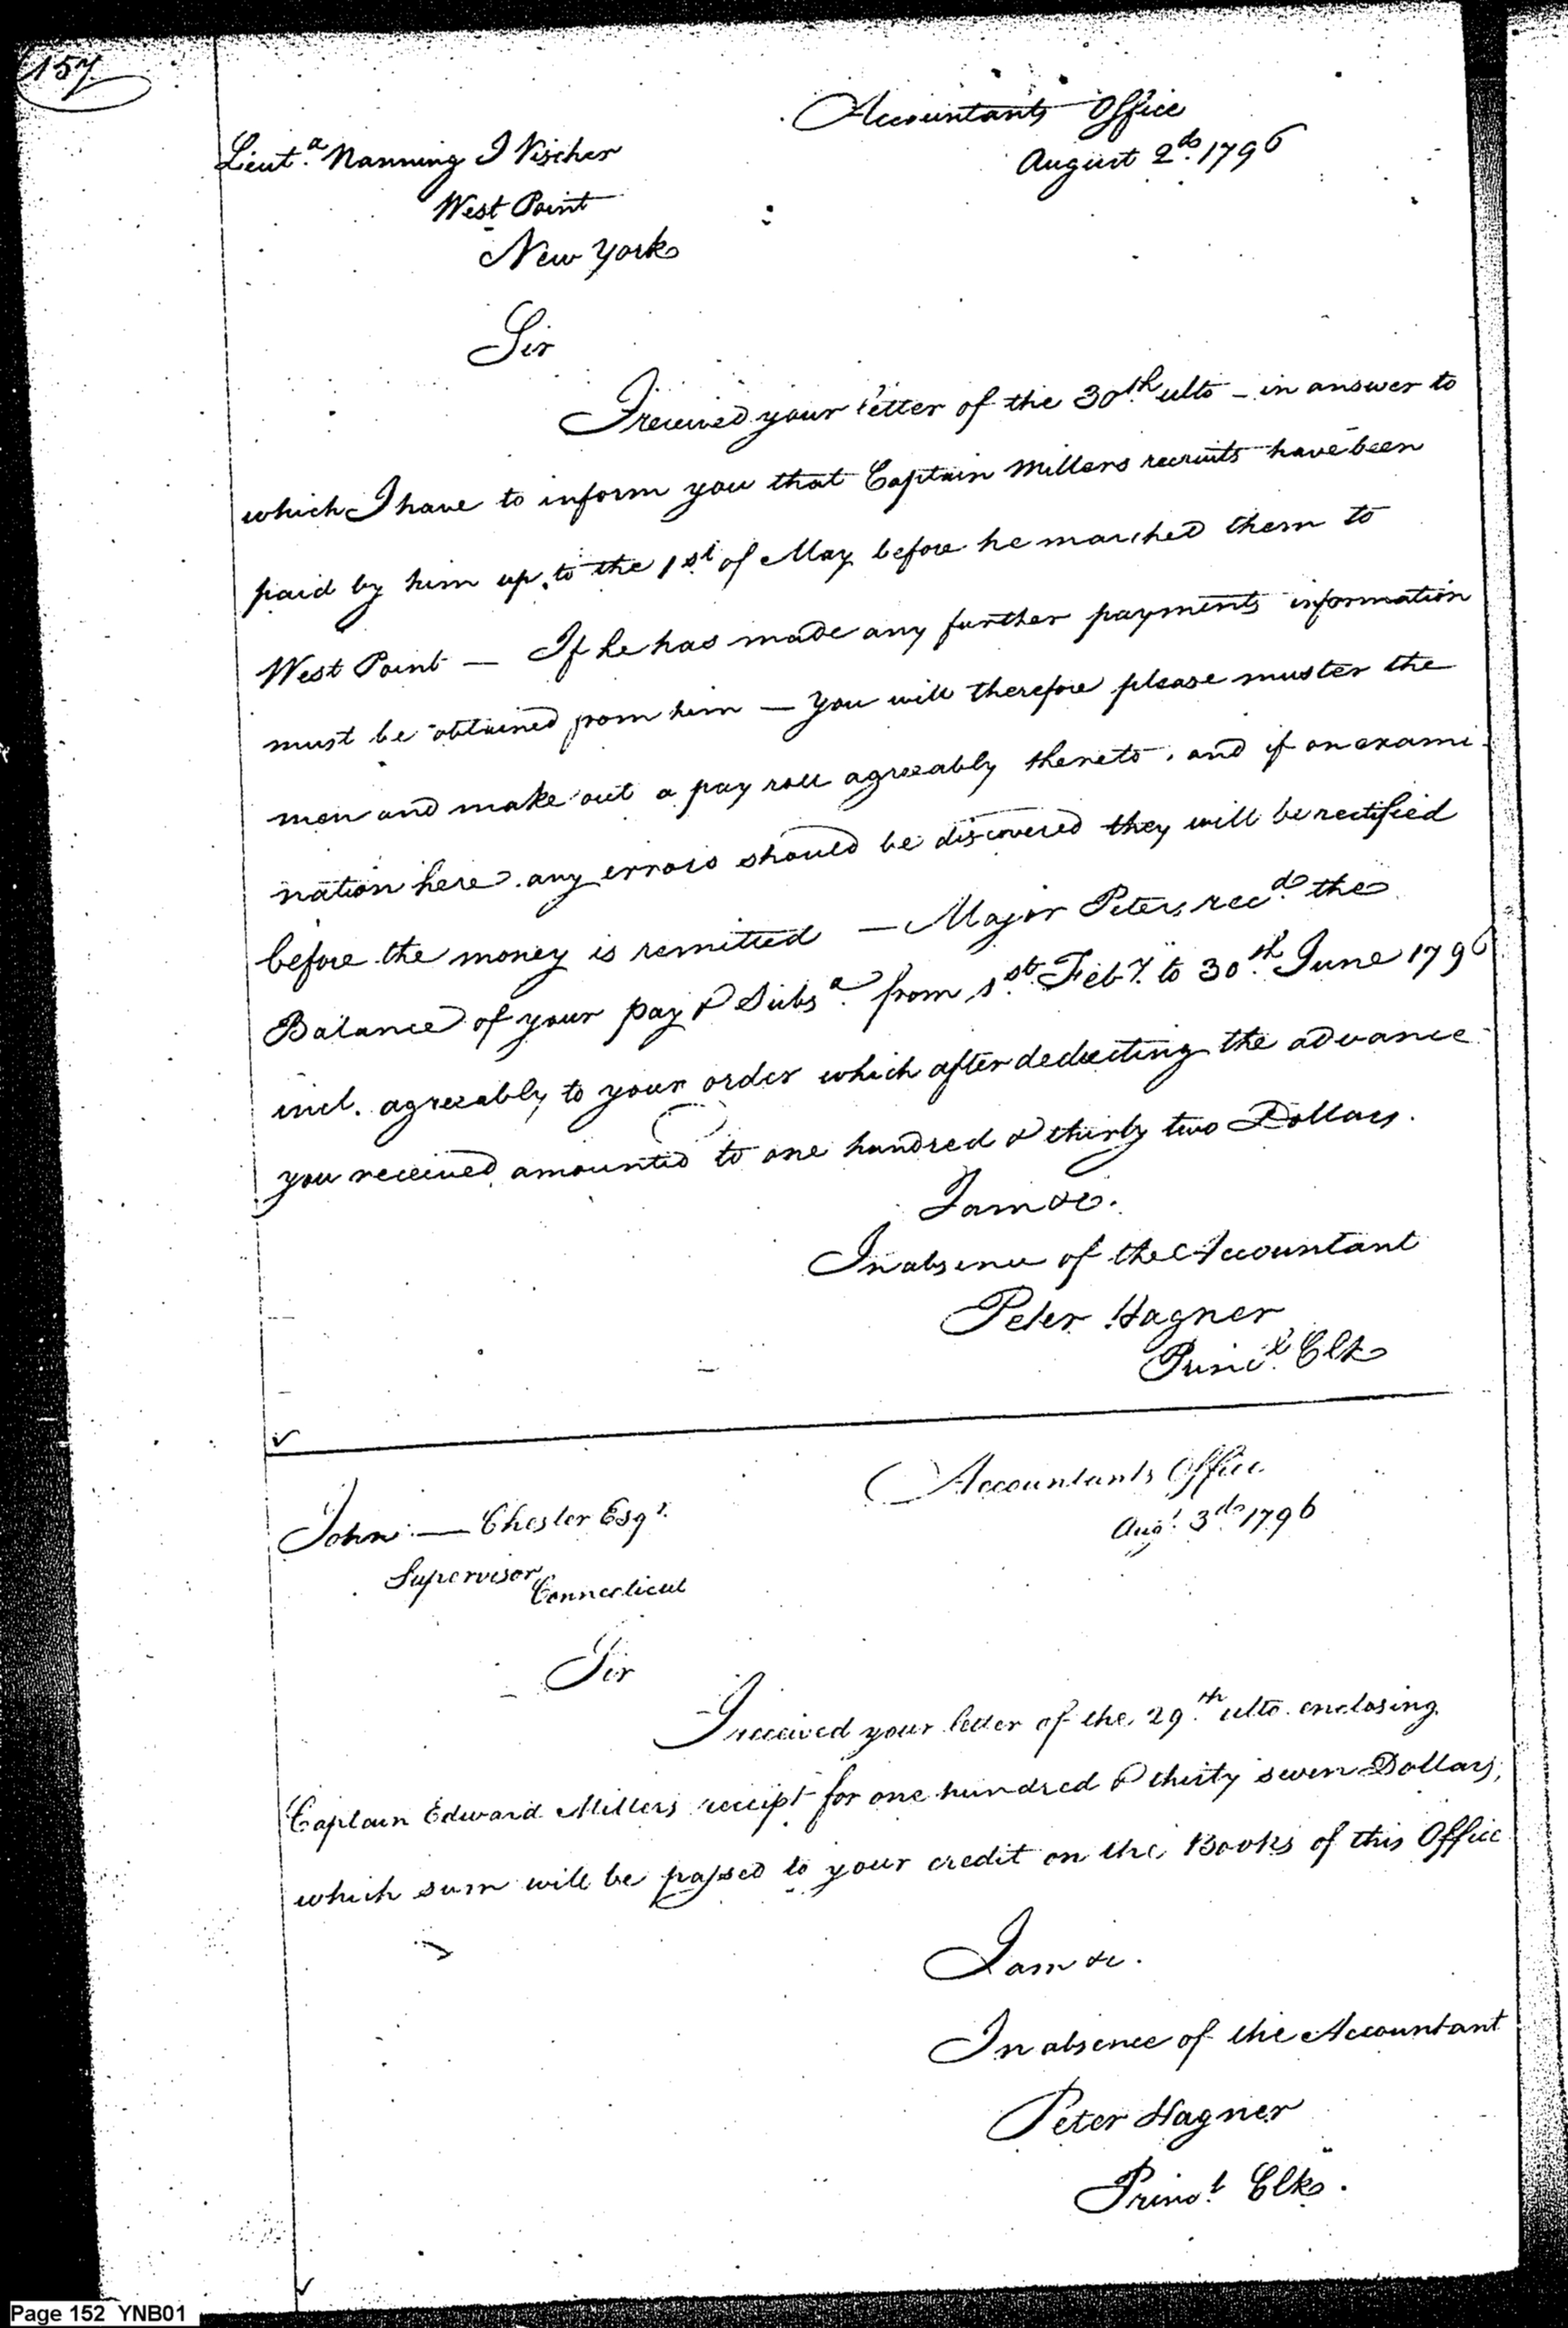 157
Accountants Office
August 2d. 1796
Lieut.a Nanning I Vischer
West Point
New York
Sir
I received your letter of the 30th. ulto - in answer to
which I have to inform you that Captain Millers recruits have been
paid by him up to the 1st of May before he marched them to
West Point — If he has made any further payments information
must be obtained from him — you will therefore please muster the
men and make out a pay roll agreeably thereto, and if on exami-
nation here any errors should be discovered they will be rectified
before the money is remitted — Major Peters recd. the
Balance of your pay & Subsa. from 1st. Feby. to 30th. June 1796
incl. agreeably to your order which after deducting the advance
you received amounted to one hundred & thirty two Dollars.
I am &c.
In absence of the Accountant
Peter Hagner
Princl. Clk
Accountants Office
Augt. 3d. 1796
John — Chester Esqr.
Supervisor
Connecticut
Sir
I received your letter of the 29th. ulto. enclosing
Captain Edward Millers receipt for one hundred & thirty seven Dollars,
which sum will be passed to your credit on the Books of this Office
I am &c.
In absence of the Accountant
Peter Hagner
Princl. Clk.
Page 152 YNB01